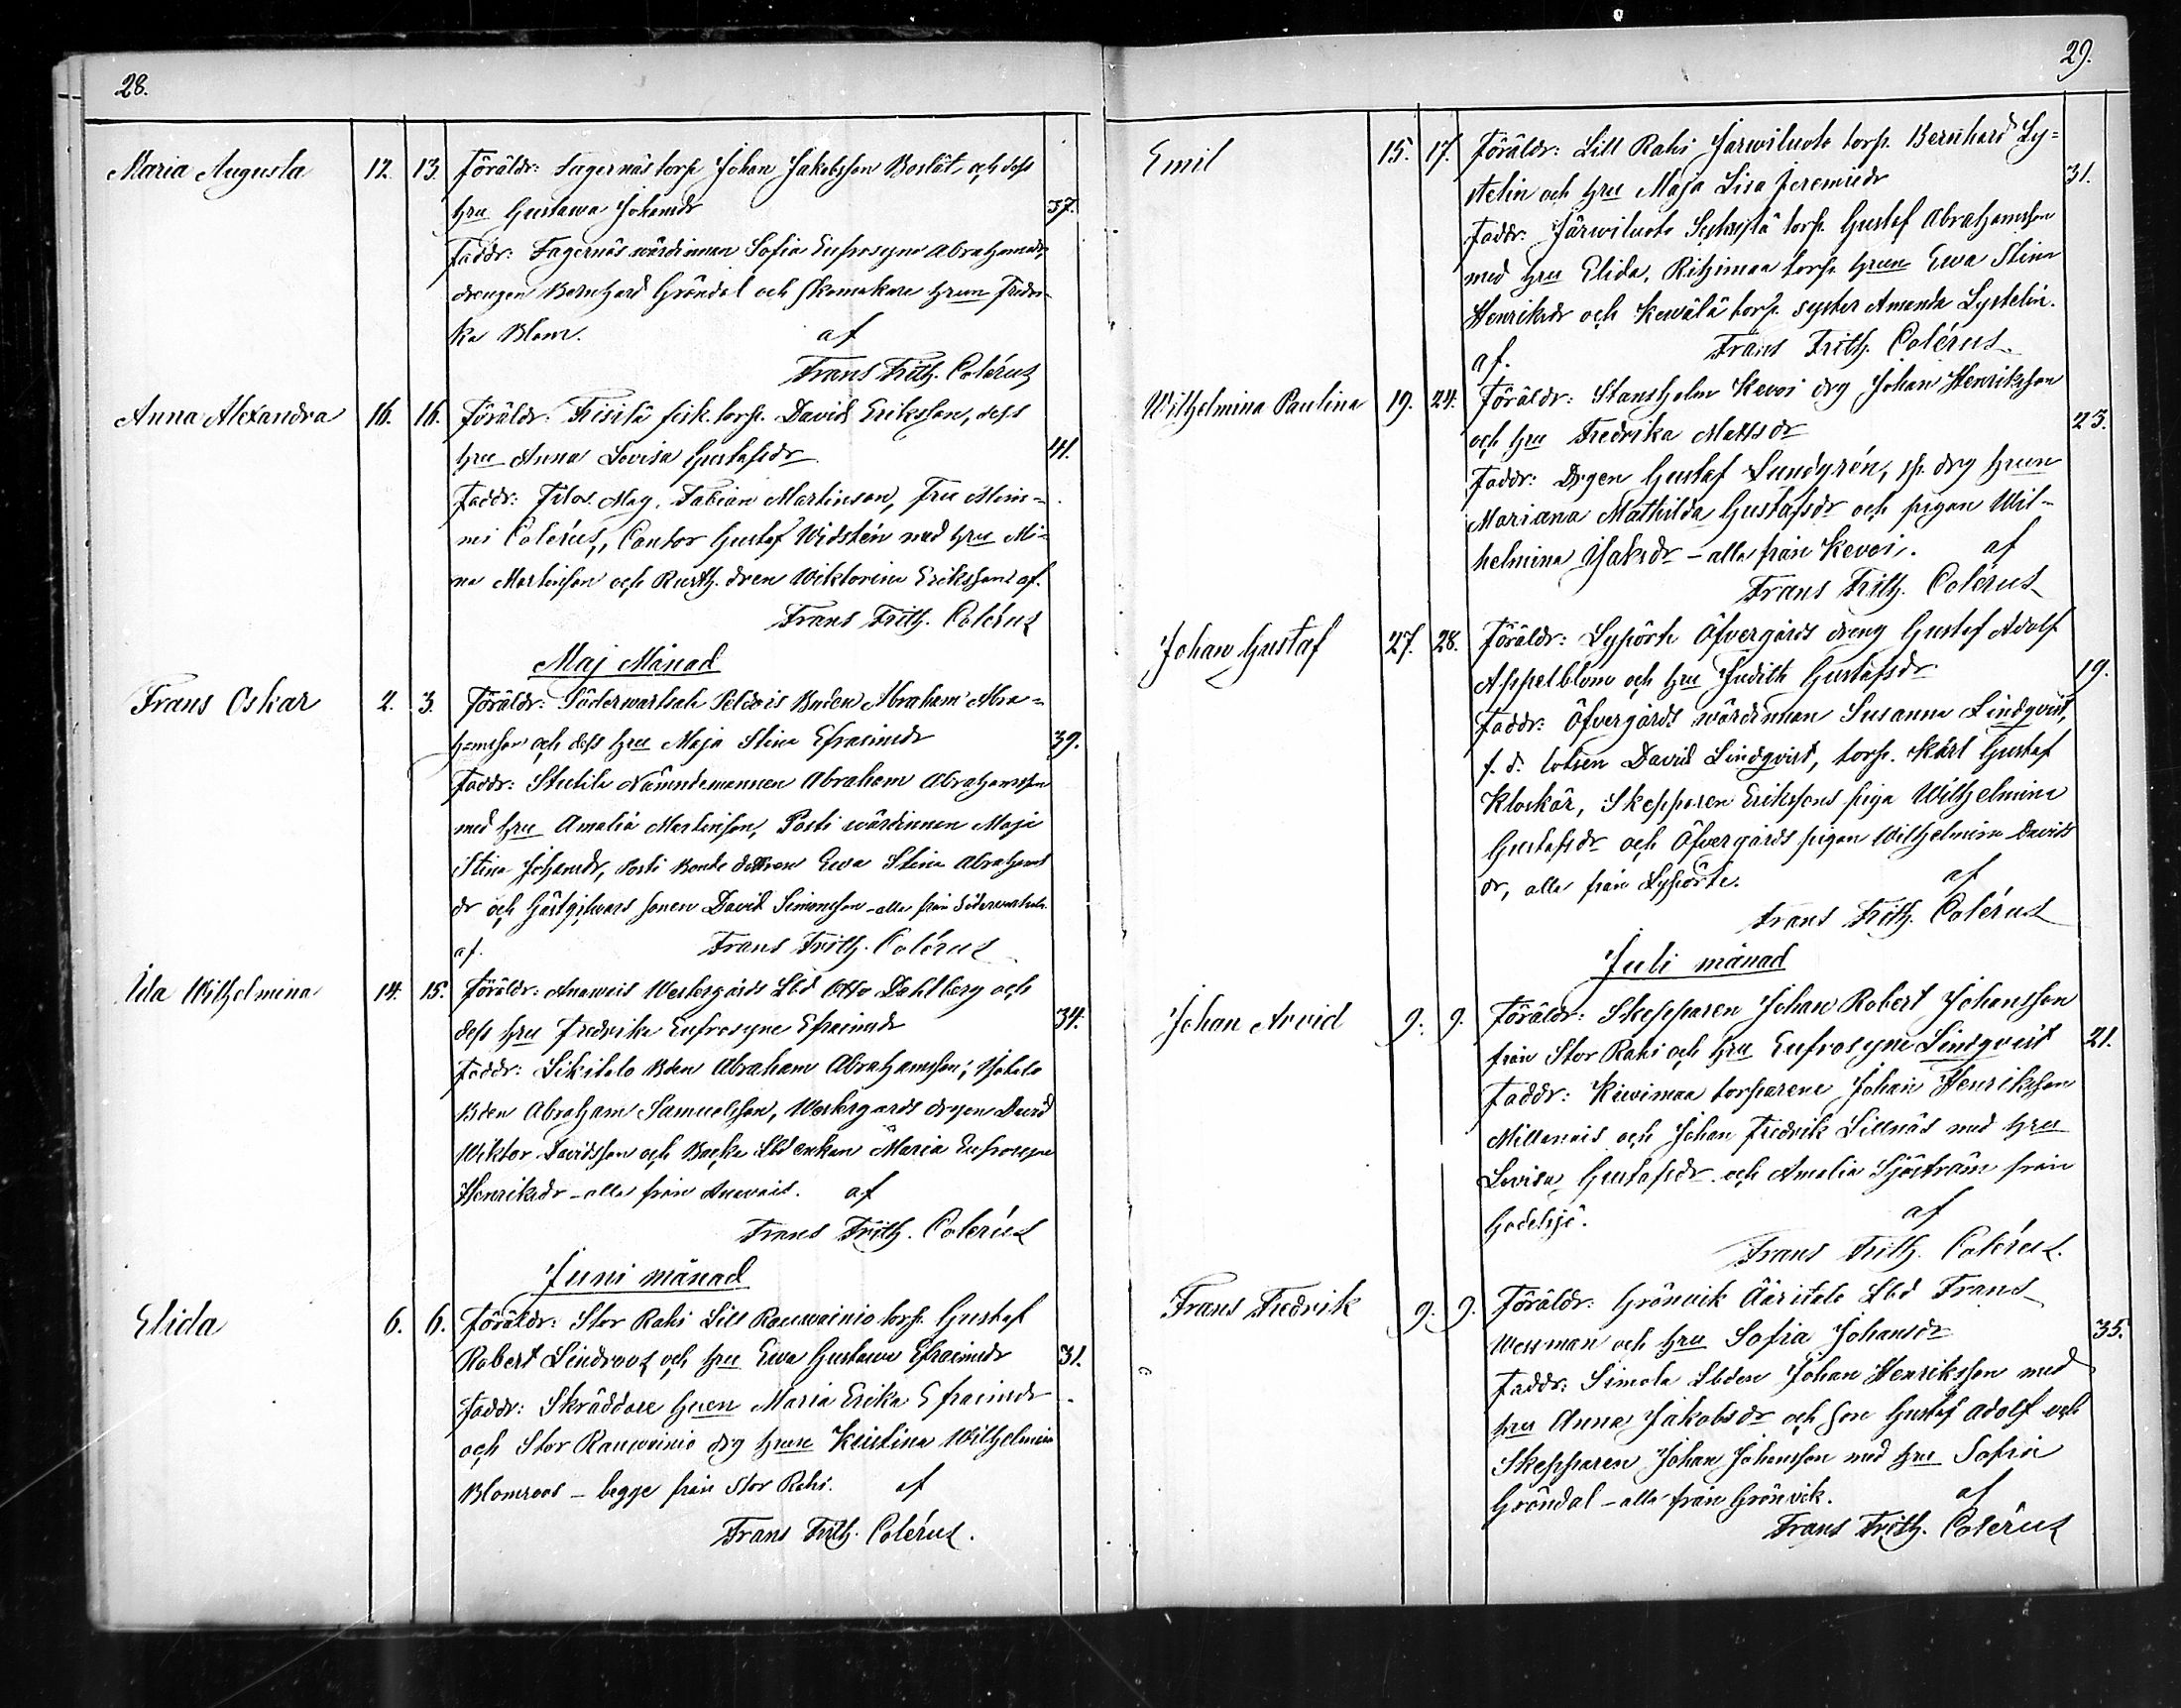 28.
Maria Augusta 12. 13. Föräldr: Fagernäs torp. Johan Jakobsson Boslät och dess
hru Gustawa Johansdr 37.
Faddr: Fagernäs wärdinnan Sofia Eufrosyne Abrahamsdr,
drengen Bernhard Gröndal och skomakare hrun Fredri-
ka Blom. af
Frans Frith. Colérus
Anna Alexandra 16. 16. Föräldr: Fisilä fisk. torp. David Eriksson, dess
hru Anna Lovisa Gustafsdr 41.
Faddr: Filos. Mag. Fabian Martinson, Fru Mim-
mi Colérus, Cantor Gustaf Widstén med hru Mi-
na Martinson och Rusth. dren Wiktorina Eriksson af.
Frans Frith. Colérus
Maj Månad
Frans Oskar 2. 3. Föräldr: Söderwartsala Peldois Bnden Abraham Abra-
hamsson och dess hru Maja Stina Efraimsdr 39.
Faddr: Stutila Nämndemannen Abraham Abrahamsson
med hru Amalia Martinson, Posti wärdinnan Maja
Stina Johansdr, Posti Bonde dottren Ewa Stina Abrahams
dr och Gästgifvars sonen David Simonsson - alla från Söderwartsala.
af. Frans Frith. Colérus
Ida Wilhelmina 14. 15. Föräldr: Anawais Westergårds Lbd Otto Dahlberg och
dess hru Fredrika Eufrosyne Efraimsdr 34.
Faddr: Sikitalo Bden Abraham Abrahamsson,
Bden Abraham Samuelsson, Westergårds drgen David
Wiktor Davidsson och Backa Lbd enkan Maria Eufrosyne
Henriksdr - alla från Anawais. af
Frans Frith. Colérus
Juni månad
Elida 6. 6. Föräldr: Stor Rahi Lill Rauwainio torp. Gustaf
Robert Lindroos och hru Ewa Gustawa Efraimsdr 31.
Faddr: Skräddare hrun Maria Erika Efraimsdr
och Stor Rauwainio drg hrun Kristina Wilhelmina
Blomroos - begge från Stor Rahi. af
Frans Frith. Colérus.
29.
Emil 15. 17. Föräldr: Lill Rahi Järwiluoto torp. Bernhard Ly-
stelin och hru Maja Lisa Jeremiedr 31.
Faddr: Järwiluoto torp. Gustaf Abrahamsson
med hru Elida, Rihimaa torp. hrun Ewa Stina
Henriksdr och Kewälä torp. syster Amanda Lystelin.
af. Frans Frith. Colérus
Wilhelmina Paulina 19. 24. Föräldr: Stansholm Kevoi drg Johan Henriksson
och hru Fredrika Mattsdr 23.
Faddr: Drgen Gustaf Lundgrén, sp. drg hrun
Mariana Mathilda Gustafsdr och pigan Wil-
helmina Isaksdr - alla från Kevoi. af
Frans Frith. Colérus
Johan Gustaf 27. 28. Föräldr: Lypörtö Öfvergårds dreng Gustaf Adolf
Appelblom och hru Judith Gustafsdr 19.
Faddr: Öfvergårds wärdinnan Susanna Lindqvist,
f. d. lotsen David Lindqvist, torp. Karl Gustaf
Kloskär, Skepparen Erikssons piga Wilhelmina
Gustafsdr och Öfvergårds pigan Wilhelmina Davids
dr, alla från Lypörtö. af
Frans Frith. Colérus
Juli månad
Johan Arvid 9. 9. Föräldr: Skepparen Johan Robert Johansson
från Stor Rahi och hru Eufrosyne Lindqvist 21.
Faddr: Kiwimaa torparene Johan Henriksson
Millanais och Johan Fredrik Lillnäs med hru
Lovisa Gustafsdr och Amalia Sjöström från
af
Frans Frith. Colérus.
Frans Fredrik 9. 9. Föräldr: Grönvik Ääritalo Lbd Frans
Wessman och hru Sofia Johansdr 35.
Faddr: Simola Lbden Johan Henriksson med
hru Anna Jakobsdr och son Gustaf Adolf och
Skepparen Johan Johansson med hru Sofia
Gröndal - alla från Grönvik. af
Frans Frith. Colérus